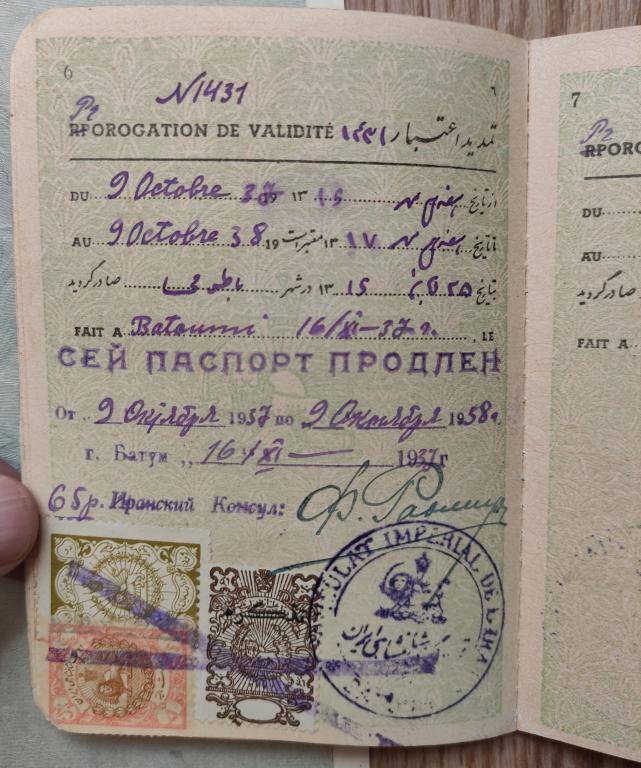 6
N 1431
Pr
RPOROGATION DE VALIDITÉ ۱۴۳۱ تمدید اعتبار
DU 9 Octobre 37 19 ۱۳۱۵ از تاریخ
AU 9 Octobre 38 19 معتبر است ۱۳۱۷ تا تاریخ
بتاریخ ۲۵ ۱۳۱۵ در شهر صادر گردید
FAIT A Batoumi 16/XI-37 г. , LE
СЕЙ ПАСПОРТ ПРОДЛЕН
От 9 Октября 1937 по 9 Октября 1958 г.
г. Батум „ 16/XI — 1937 г
65р. Иранский Консул:
CONSULAT IMPERIAL DE L'IRAN
شاهنشاهی ایران
7
Pr
RPORO
DU
AU
صادر گردید
FAIT A